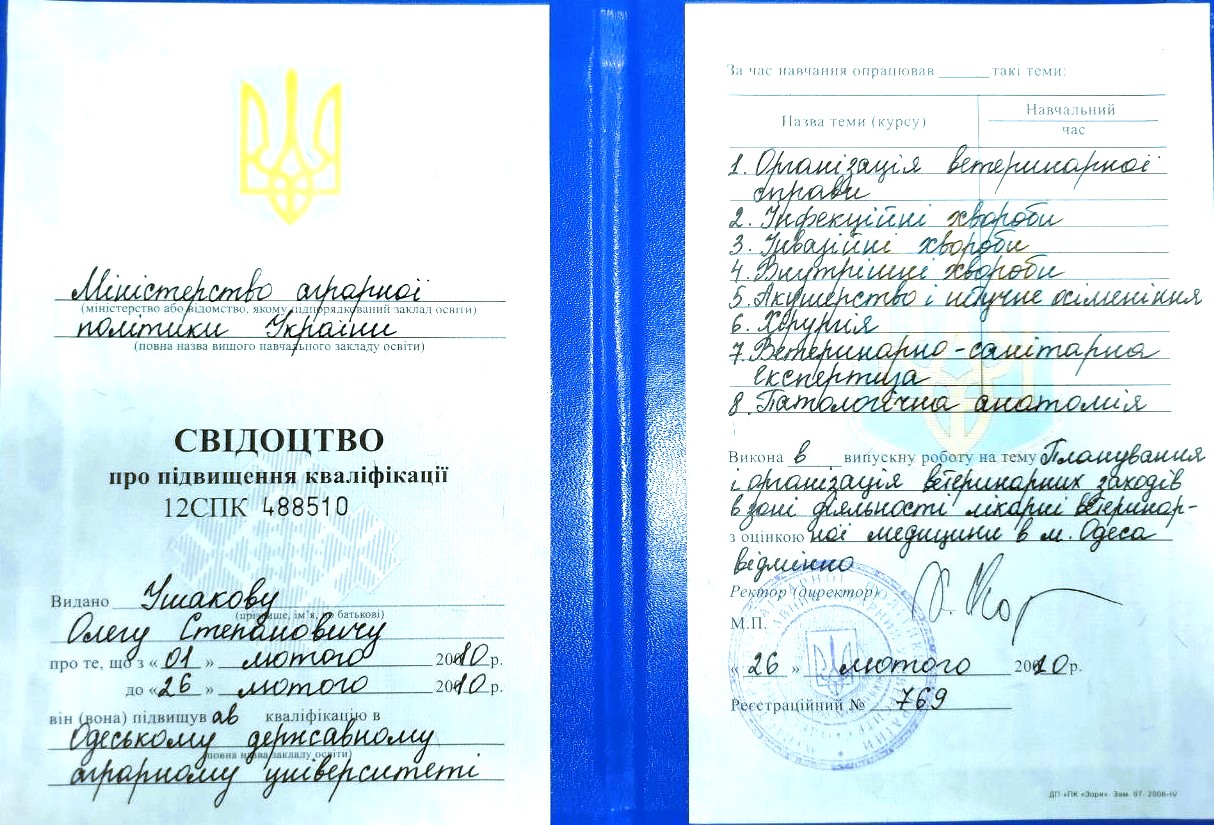 Міністерство аграрної
(міністерство або відомство, якому підпорядкований заклад освіти)
політики України
(повна назва вищого навчального закладу освіти)
СВІДОЦТВО
про підвищення кваліфікації
12СПК 488510
Видано Ушакову
(прізвище, ім’я, по батькові)
Олегу Степановичу
про те, що з «01» лютого 2010 р.
до «26» лютого 2010 р.
він (вона) підвищував кваліфікацію в
Одеському державному
(повна назва закладу освіти)
аграрному університеті
За час навчання опрацював ______ такі теми:
Назва теми (курсу)
Навчальний
час
1. Організація ветеринарної
справи
2. Інфекційні хвороби
3. Інвазійні хвороби
4. Внутрішні хвороби
5. Акушерство і штучне осіменіння
6. Хірургія
7. Ветеринарно-санітарна
експертиза
8. Патологічна анатомія
Викона в випускну роботу на тему Планування
і організація ветеринарних заходів
в зоні діяльності лікарні ветеринар-
з оцінкою ної медицини в м. Одеса
відмінно
Ректор (директор)
М.П.
«26» лютого 2010 р.
Реєстраційний № 769
ДП «ПК «Зоря» Зам. 97. 2006-IV